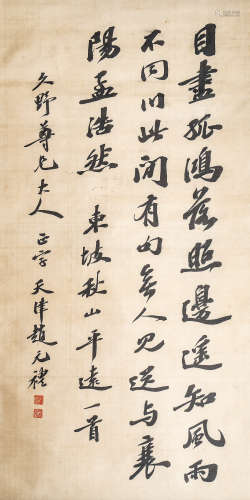 目盡孤鴻落照邊遙知風雨
不同川此間有句無人見送与襄
陽孟浩然 東坡秋山平遠一首
久野尊兄大人 正字 天津趙元禮